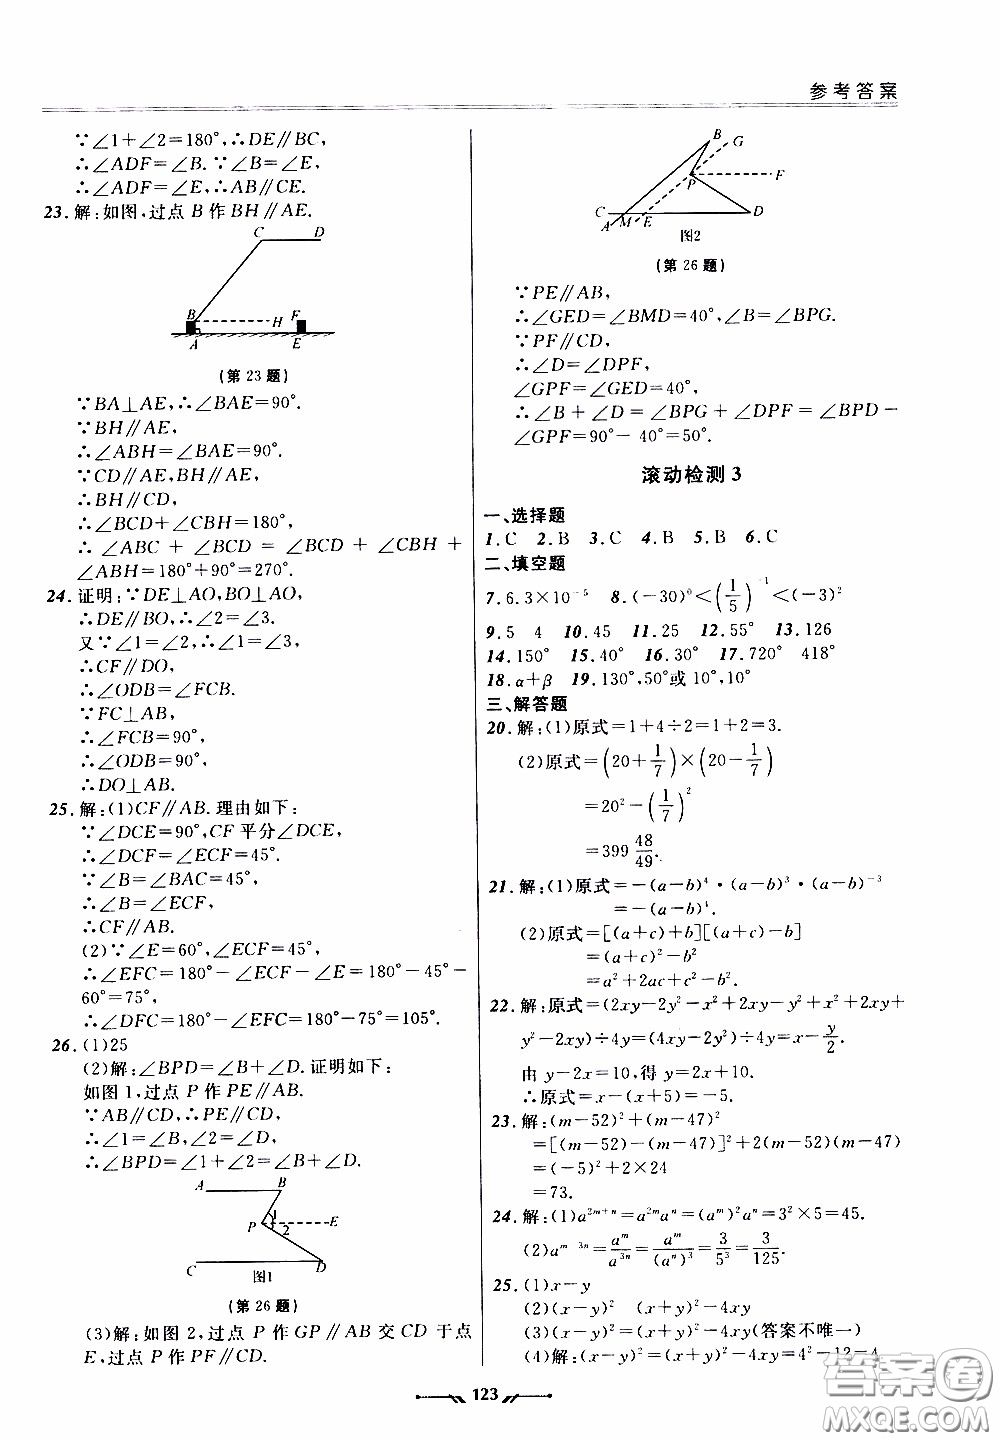 参考答案
∵∠1+∠2=180°,∴DE∥BC,
∴∠ADF=∠B.∵∠B=∠E,
∴∠ADF=∠E,∴AB∥CE.
23.解:如图,过点B作BH∥AE.
C D
B H F
A E
(第23题)
∵BA⊥AE,∴∠BAE=90°.
∵BH∥AE,
∴∠ABH=∠BAE=90°.
∵CD∥AE,BH∥AE,
∴BH∥CD,
∴∠BCD+∠CBH=180°,
∴∠ABC+∠BCD=∠BCD+∠CBH+
∠ABH=180°+90°=270°.
24.证明:∵DE⊥AO,BO⊥AO,
∴DE∥BO,∴∠2=∠3.
又∵∠1=∠2,∴∠1=∠3,
∴CF∥DO,
∴∠ODB=∠FCB.
∵FC⊥AB,
∴∠FCB=90°,
∴∠ODB=90°,
∴DO⊥AB.
25.解:(1)CF∥AB.理由如下:
∵∠DCE=90°,CF平分∠DCE,
∴∠DCF=∠ECF=45°.
∵∠B=∠BAC=45°,
∴∠B=∠ECF,
∴CF∥AB.
(2)∵∠E=60°,∠ECF=45°,
∴∠EFC=180°-∠ECF-∠E=180°-45°-
60°=75°,
∴∠DFC=180°-∠EFC=180°-75°=105°.
26.(1)25
(2)解:∠BPD=∠B+∠D.证明如下:
如图1,过点P作PE∥AB.
∵AB∥CD,∴PE∥CD,
∴∠1=∠B,∠2=∠D,
∴∠BPD=∠1+∠2=∠B+∠D.
A B
P 1 2 E
C D
图1
(第26题)
(3)解:如图2,过点P作GP∥AB交CD于点
E,过点P作PF∥CD.
B G
P F
C A M E D
图2
(第26题)
∵PE∥AB,
∴∠GED=∠BMD=40°,∠B=∠BPG.
∵PF∥CD,
∴∠D=∠DPF,
∠GPF=∠GED=40°,
∴∠B+∠D=∠BPG+∠DPF=∠BPD-
∠GPF=90°-40°=50°.
滚动检测3
一、选择题
1.C 2.B 3.C 4.B 5.B 6.C
二、填空题
7.6.3×10⁻⁵ 8.(-30)⁰<(1/5)⁻¹<(-3)²
9.5 4 10.45 11.25 12.55° 13.126
14.150° 15.40° 16.30° 17.720° 418°
18.α+β 19.130°,50°或10°,10°
三、解答题
20.解:(1)原式=1+4÷2=1+2=3.
(2)原式=(20+1/7)×(20-1/7)
=20²-(1/7)²
=399 48/49.
21.解:(1)原式=-(a-b)⁴·(a-b)³·(a-b)⁻³
=-(a-b)⁴.
(2)原式=[(a+c)+b][(a+c)-b]
=(a+c)²-b²
=a²+2ac+c²-b².
22.解:原式=(2xy-2y²-x²+2xy-y²+x²+
y²-2xy)÷4y=(4xy-2y²)÷4y=x-y/2.
由y-2x=10,得y=2x+10.
∴原式=x-(x+5)=-5.
23.解:(m-52)²+(m-47)²
=[(m-52)-(m-47)]²+2(m-52)(m-47)
=(-5)²+2×24
=73.
24.解:(1)a²ᵐ⁺ⁿ=a²ᵐaⁿ=(aᵐ)²aⁿ=3²×5=45.
(2)aᵐ ³ⁿ=aᵐ/a³ⁿ=aᵐ/(aⁿ)³=3/5³=3/125.
25.(1)x-y
(2)(x-y)² (x+y)²-4xy
(3)(x-y)²=(x+y)²-4xy(答案不唯一)
(4)解:(x-y)²=(x+y)²-4xy=4²-12=4
123
答案圈
MXQE.COM